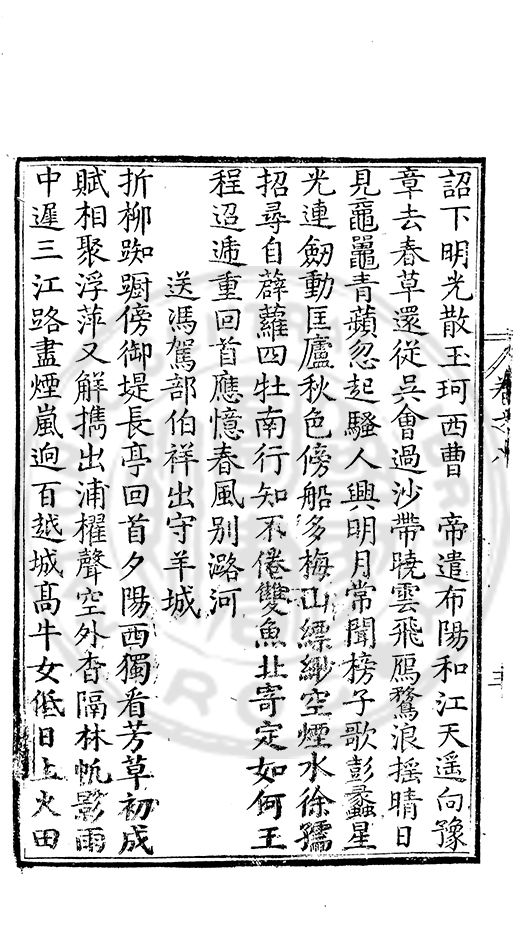 詔下明光散玉珂西曹　帝遣布陽和江天遥向豫
章去春草還從吳會過沙帶曉雲飛鴈鶩浪摇晴日
見黿鼉青蘋忽起騷人興明月常聞榜子歌彭蠡星
光連劒動匡廬秋色傍船多梅山縹緲空煙水徐孺
招尋自薜蘿四牡南行知不倦雙魚北寄定如何王
程迢逓重回首應憶春風别潞河
送馮駕部伯祥出守羊城
折柳踟蹰傍御堤長亭回首夕陽西獨看芳草初成
賦相聚浮萍又解擕出浦櫂聲空外杳隔林帆影雨
中遲三江路盡煙嵐逈百越城高牛女低日上火田